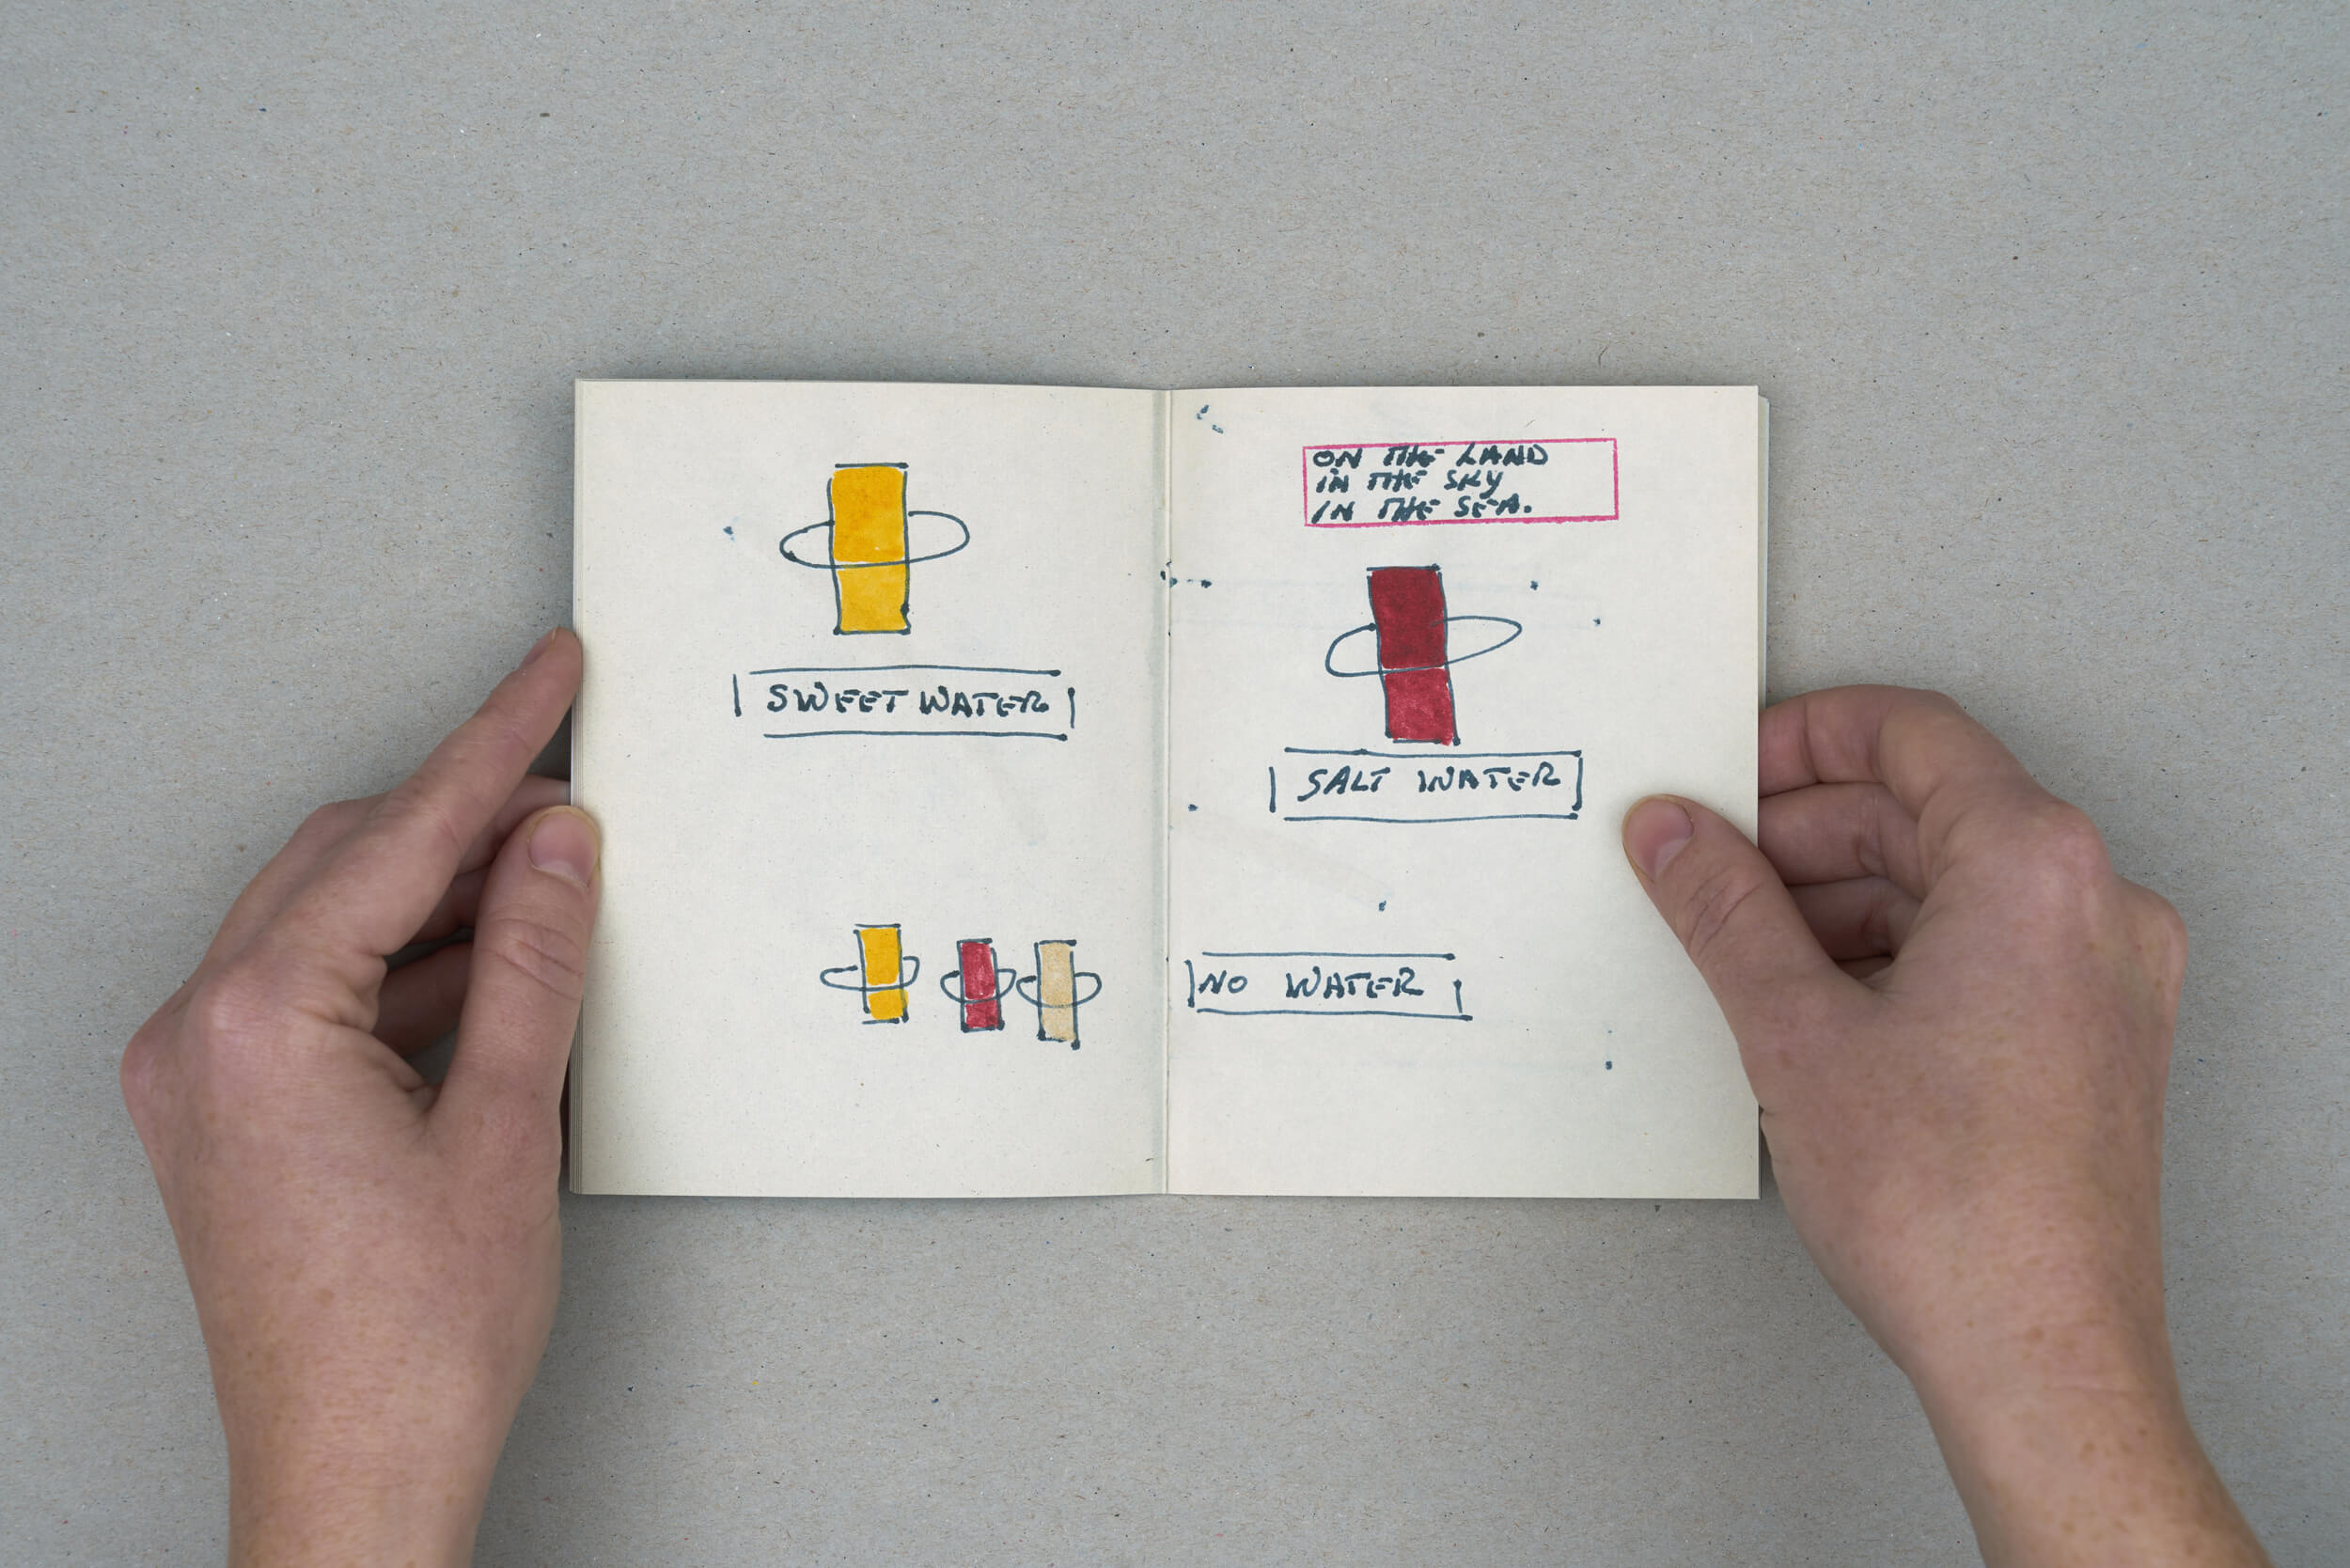 SWEET WATER
ON THE LAND
IN THE SKY
IN THE SEA.
SALT WATER
NO WATER